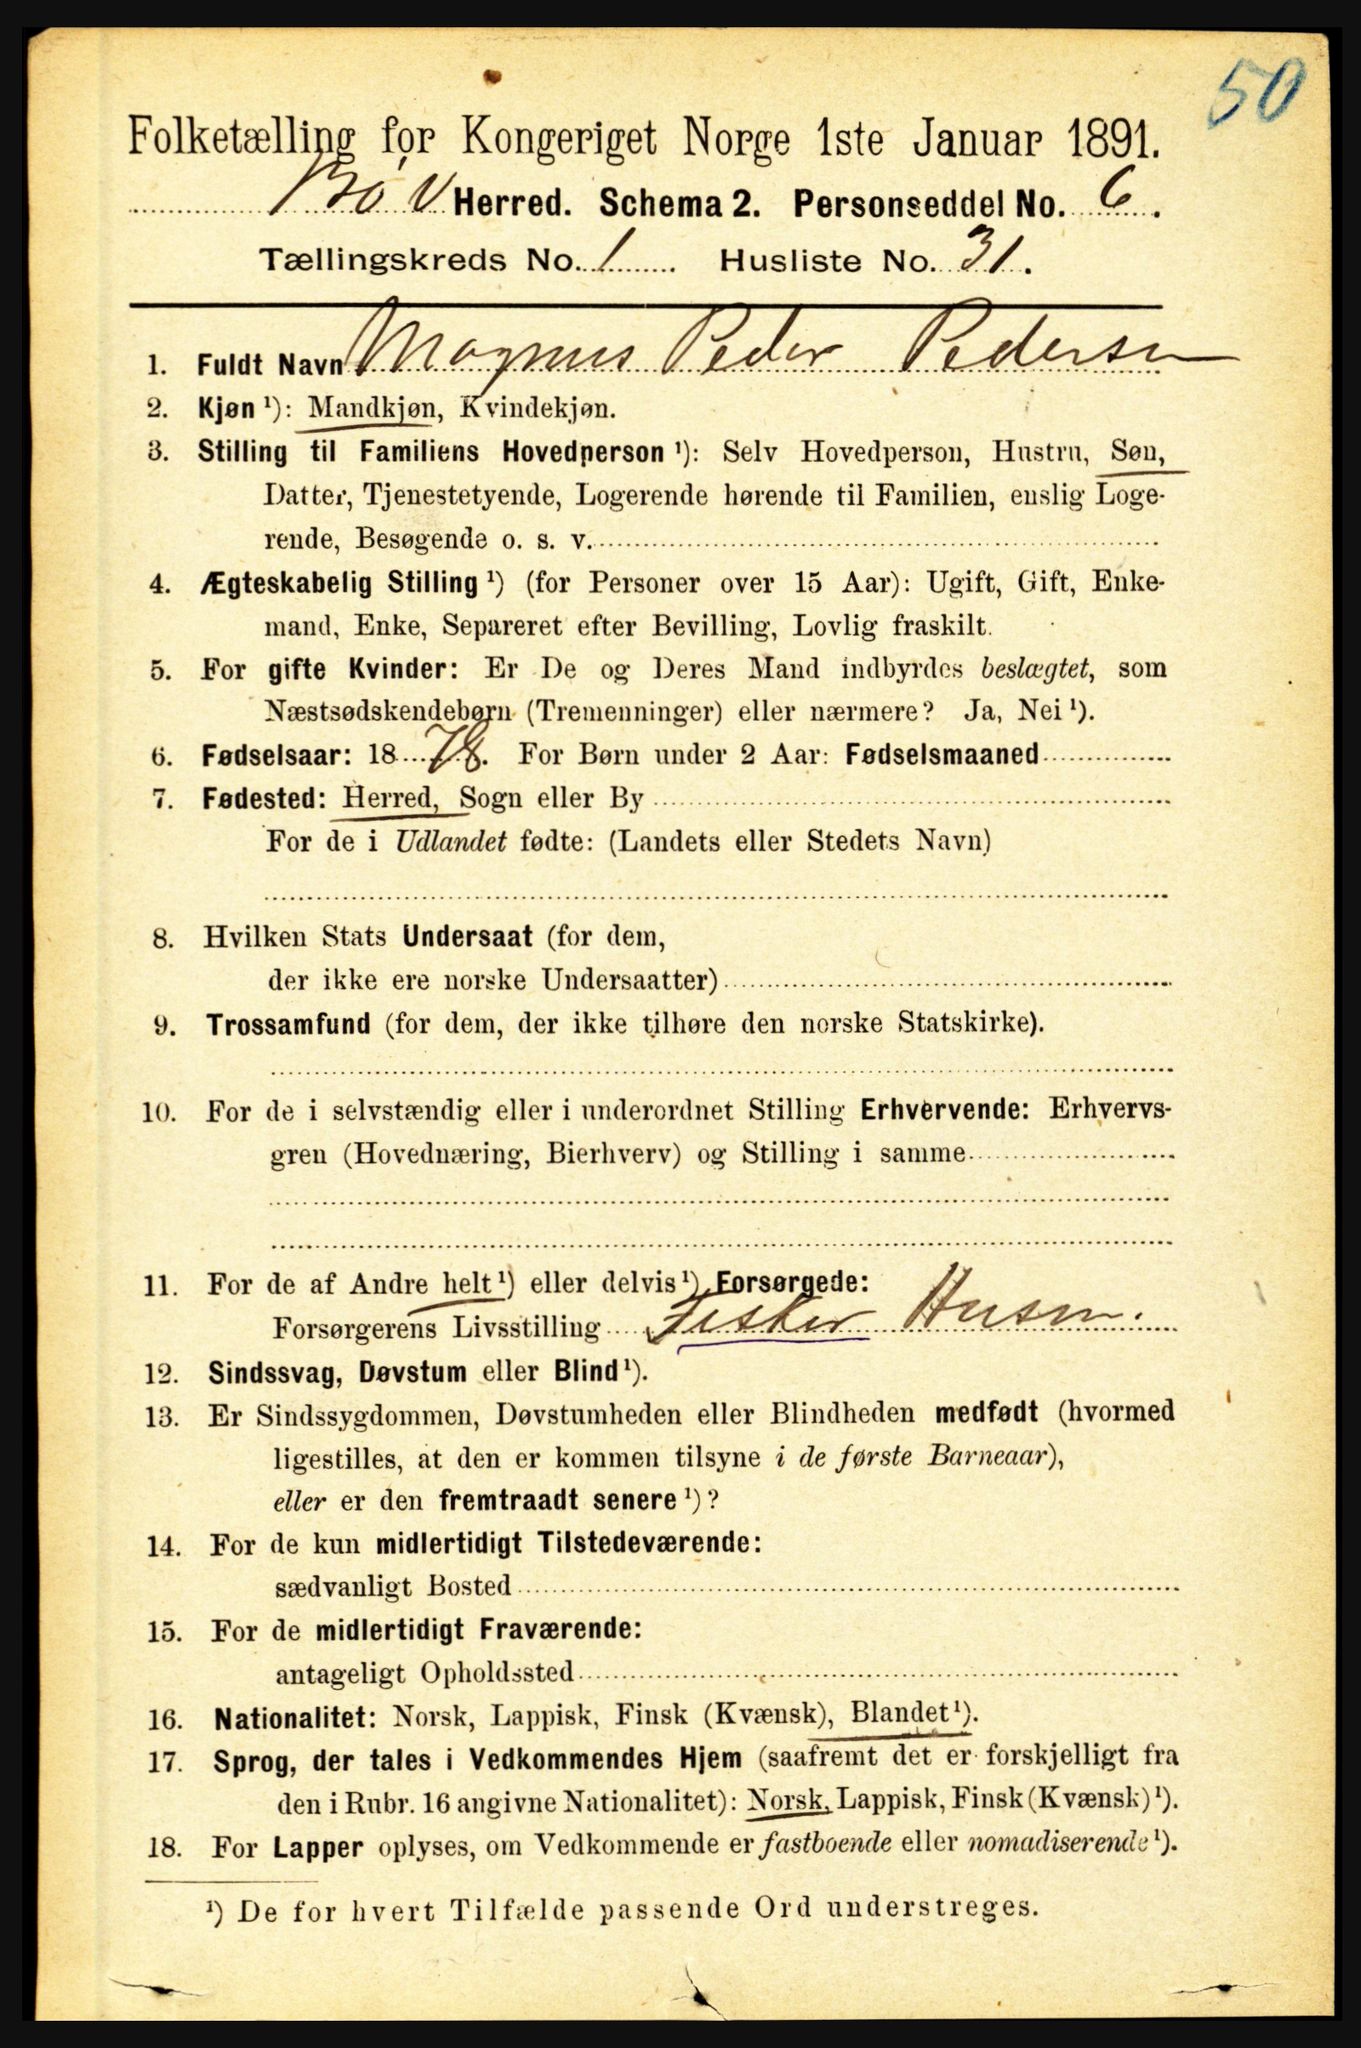 50
Folketælling for Kongeriget Norge 1ste Januar 1891.
Bø V Herred. Schema 2. Personseddel No. 6.
Tællingskreds No. 1 Husliste No. 31.
1. Fuldt Navn Magnus Peder Pedersen
2. Kjøn ¹): Mandkjøn, Kvindekjøn.
3. Stilling til Familiens Hovedperson ¹): Selv Hovedperson, Hustru, Søn,
Datter, Tjenestetyende, Logerende hørende til Familien, enslig Loge-
rende, Besøgende o. s. v.
4. Ægteskabelig Stilling ¹) (for Personer over 15 Aar): Ugift, Gift, Enke-
mand, Enke, Separeret efter Bevilling, Lovlig fraskilt.
5. For gifte Kvinder: Er De og Deres Mand indbyrdes beslægtet, som
Næstsødskendebørn (Tremenninger) eller nærmere? Ja, Nei ¹).
6. Fødselsaar: 1878. For Børn under 2 Aar: Fødselsmaaned
7. Fødested: Herred, Sogn eller By
For de i Udlandet fødte: (Landets eller Stedets Navn)
8. Hvilken Stats Undersaat (for dem,
der ikke ere norske Undersaatter)
9. Trossamfund (for dem, der ikke tilhøre den norske Statskirke).
10. For de i selvstændig eller i underordnet Stilling Erhvervende: Erhvervs-
gren (Hovednæring, Bierhverv) og Stilling i samme
11. For de af Andre helt ¹) eller delvis ¹) Forsørgede:
Forsørgerens Livsstilling Fisker Husm.
12. Sindssvag, Døvstum eller Blind ¹).
13. Er Sindssygdommen, Døvstumheden eller Blindheden medfødt (hvormed
ligestilles, at den er kommen tilsyne i de første Barneaar),
eller er den fremtraadt senere ¹)?
14. For de kun midlertidigt Tilstedeværende:
sædvanligt Bosted
15. For de midlertidigt Fraværende:
antageligt Opholdssted
16. Nationalitet: Norsk, Lappisk, Finsk (Kvænsk), Blandet ¹).
17. Sprog, der tales i Vedkommendes Hjem (saafremt det er forskjelligt fra
den i Rubr. 16 angivne Nationalitet): Norsk, Lappisk, Finsk (Kvænsk) ¹).
18. For Lapper oplyses, om Vedkommende er fastboende eller nomadiserende ¹).
¹) De for hvert Tilfælde passende Ord understreges.